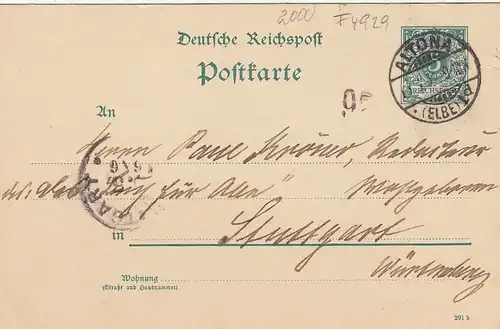 2000 F4929
Deutsche Reichspost
Postkarte
ALTONA
REICHSPOST
(ELBE)
An
Herrn Paul Kröner, Redakteur
des "das Buch für Alle" Wohlgeboren
in Stuttgart
Württemberg
Wohnung
(Straße und Hausnummer)
291 b